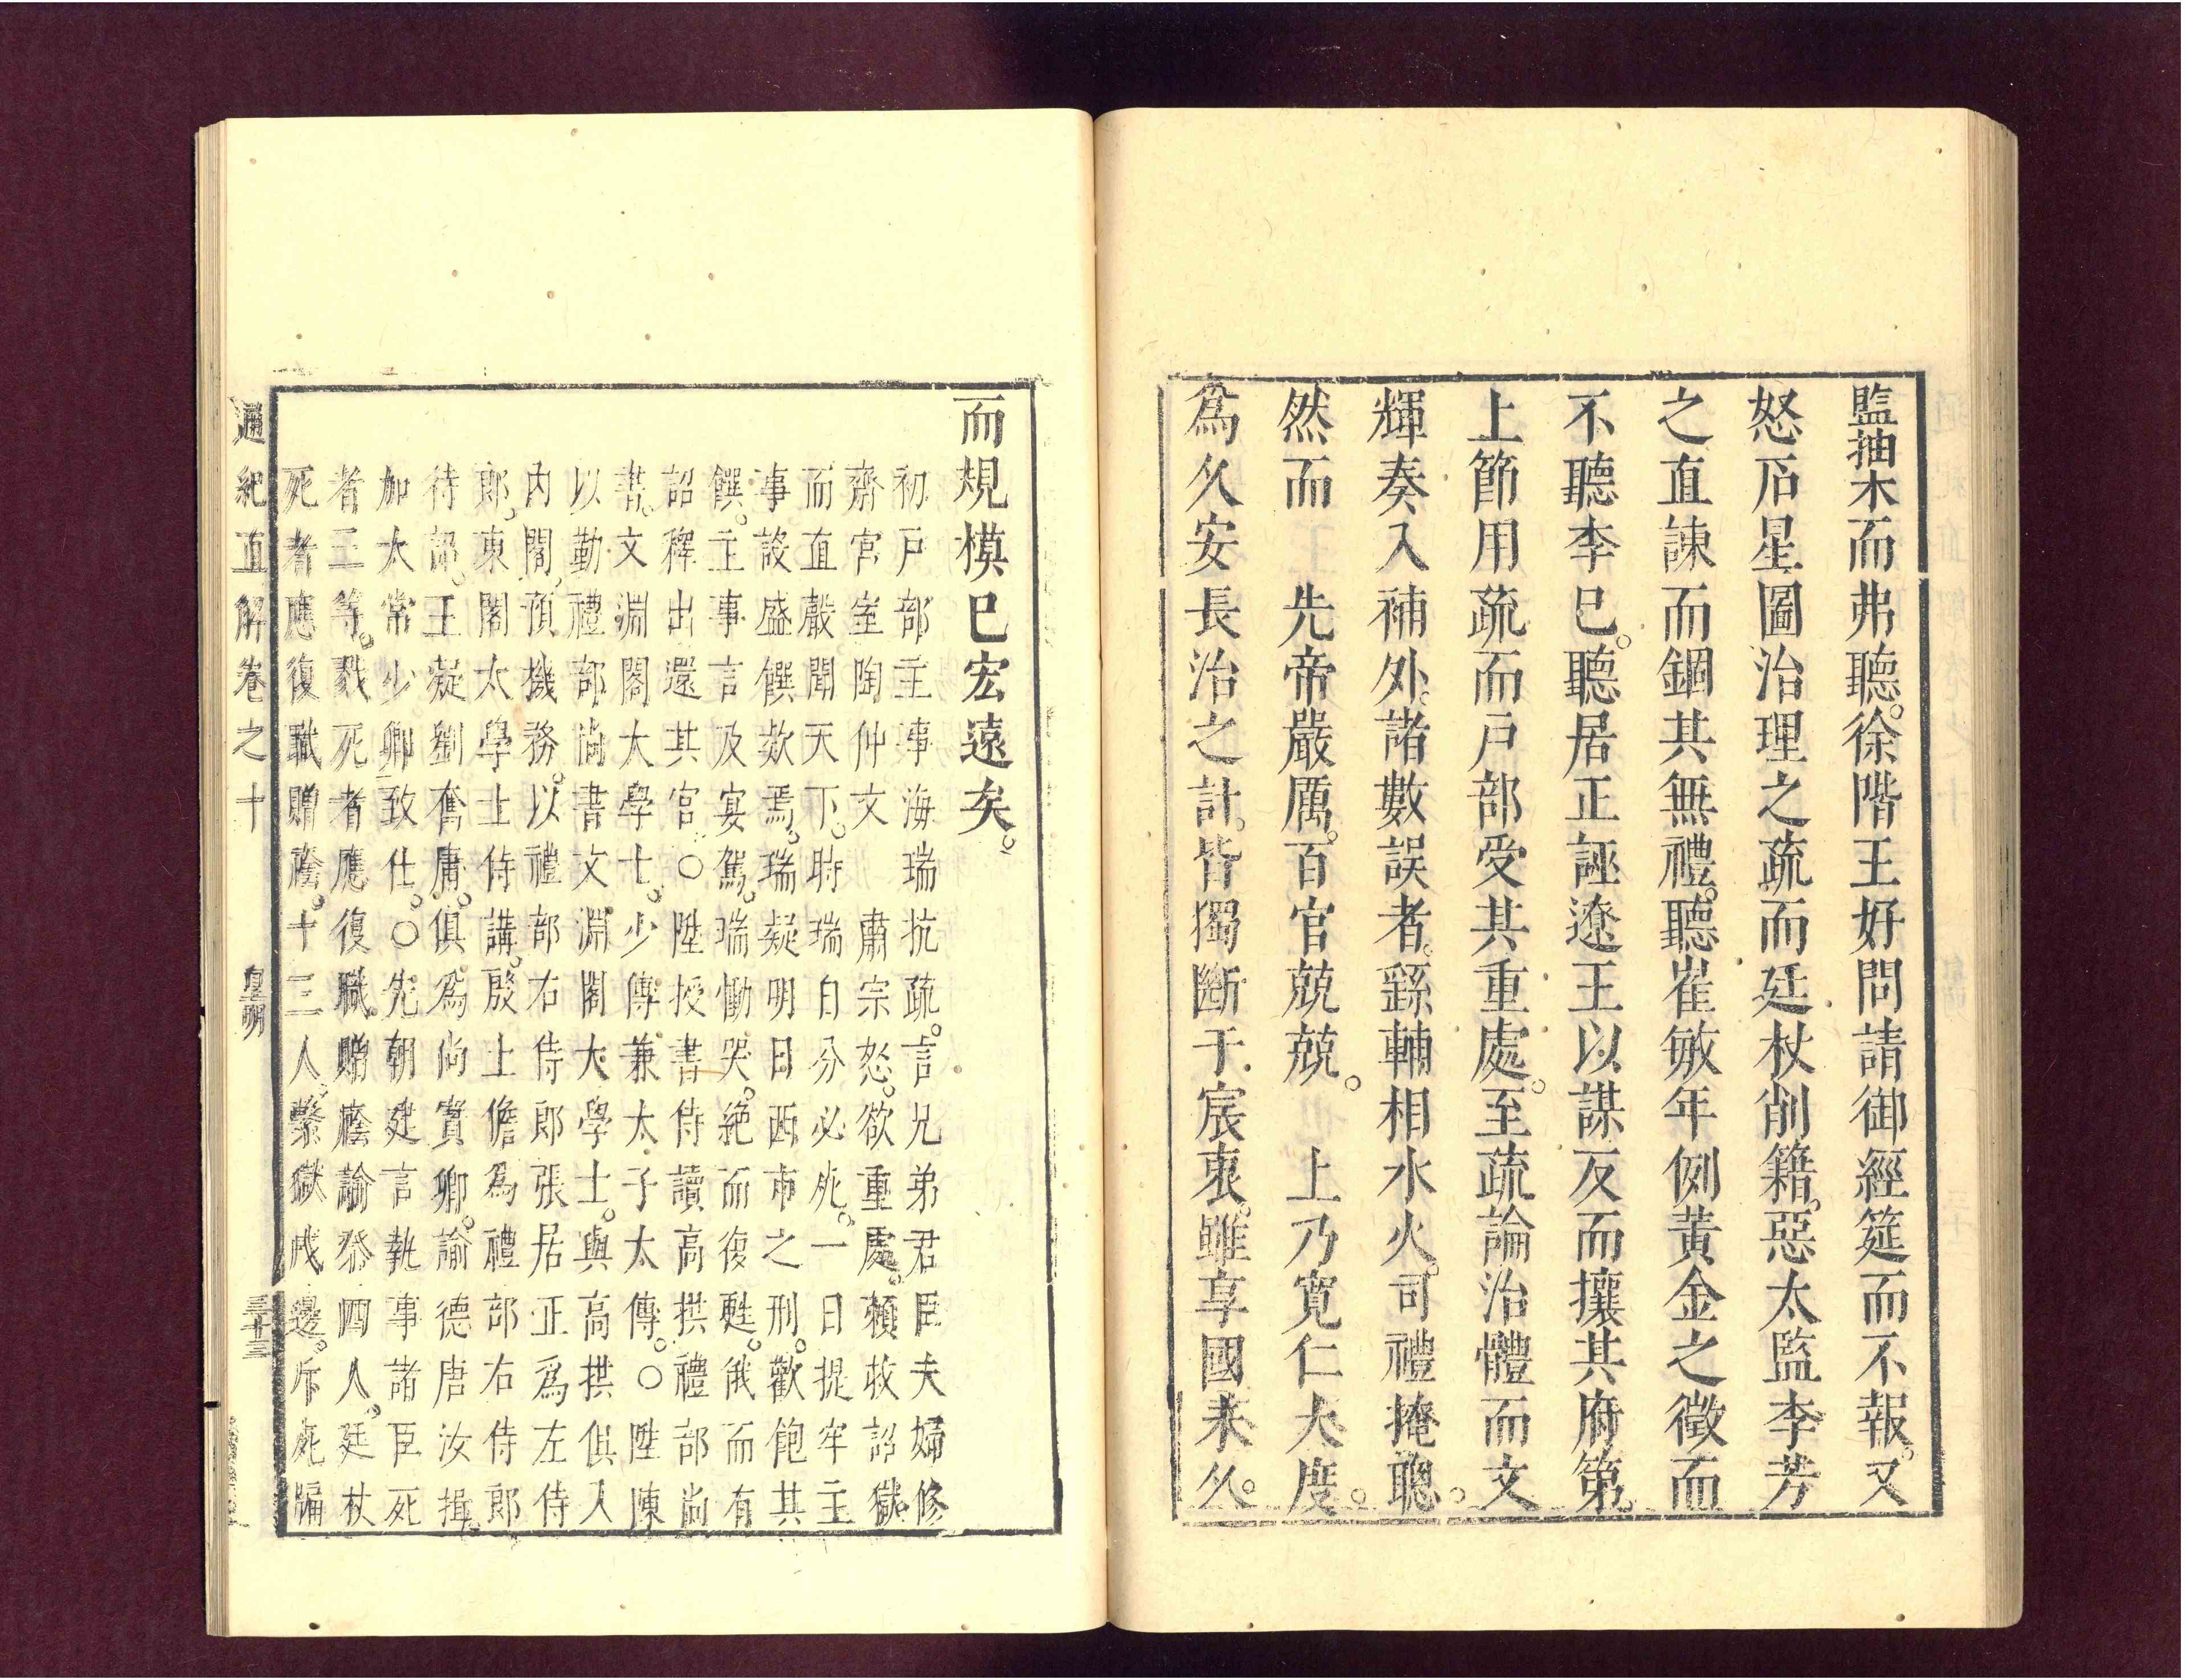 監抽木而弗聽。徐階王好問請御經筵而不報。又
怒石星圖治理之疏而廷杖削籍。惡太監李芳
之直諫而錮其無禮。聽崔敏年例黃金之徵而
不聽李巳。聽居正誣遼王以謀反而攘其府第。
上節用疏而戶部受其重處。至疏論治體而文
輝奏入補外。諸數誤者。繇輔相水火。司禮掩聰。
然而　先帝嚴厲。百官兢兢。　上乃寬仁大度。
爲久安長治之計。皆獨斷于宸衷。雖享國未久。
而規模巳宏遠矣。
初戶部主事海瑞抗疏。言兄弟君臣夫婦修
齋宮室陶仲文　肅宗怒。欲重處。賴收詔獄
而直嚴聞天下。時瑞自分必死。一日提牢主
事設盛饌欵焉。瑞疑明日西市之刑。歡飽其
饌。主事言及宴駕。瑞慟哭。絕而復甦。俄而有
詔釋出還其官。○陞授書侍讀高拱禮部尚
書。文淵閣大學士。少傅兼太子太傅。○陞陳
以勤禮部尚書文淵閣大學士。與高拱俱入
內閣。預機務。以禮部右侍郎張居正爲左侍
郎。東閣太學士侍講。殷士儋爲禮部右侍郎
待郎。王凝劉奮庸。俱爲尚寶卿。諭德唐汝揖
加太常少卿致仕。○先朝建言執事諸臣死
者三等。戮死者應復職贈廕諭祭四人。廷杖
死者應復職贈廕。十三人。繫獄戍邊。斥死牖
通紀直解卷之十　皇明　三十三